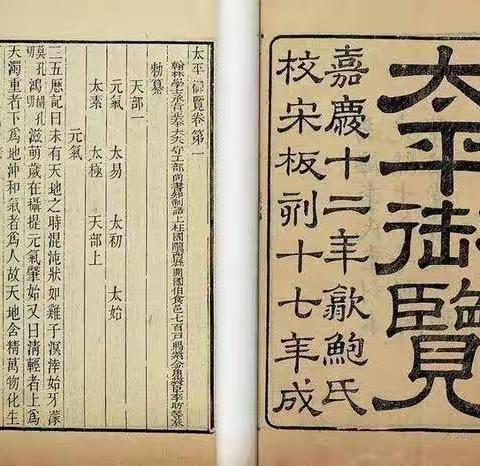 太平御覽
嘉慶十二年歙鮑氏
校宋板刋十七年成
太平御覽卷第一
翰林學士承旨正奉大夫守工部尚書知制誥上柱國隴西縣開國伯食邑七百戶賜紫金魚袋臣李昉等奉
勅纂
天部一
元氣 太易 太初 太始
太素 太極 天部上
元氣
三五厤記曰未有天地之時混沌狀如雞子溟涬始牙濛
莫孔切鴻孔切滋萌歲在攝提元氣肇始又曰清輕者上爲
天濁重者下爲地沖和氣者爲人故天地含精萬物化生